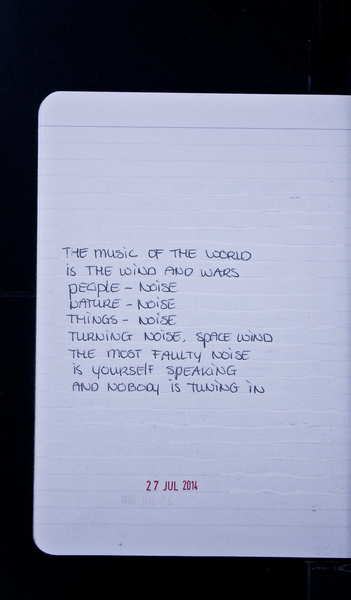 THE MUSIC OF THE WORLD
IS THE WIND AND WARS
PEOPLE - NOISE
NATURE - NOISE
THINGS - NOISE
TURNING NOISE, SPACE WIND
THE MOST FAULTY NOISE
IS YOURSELF SPEAKING
AND NOBODY IS TUNING IN
27 JUL 2014